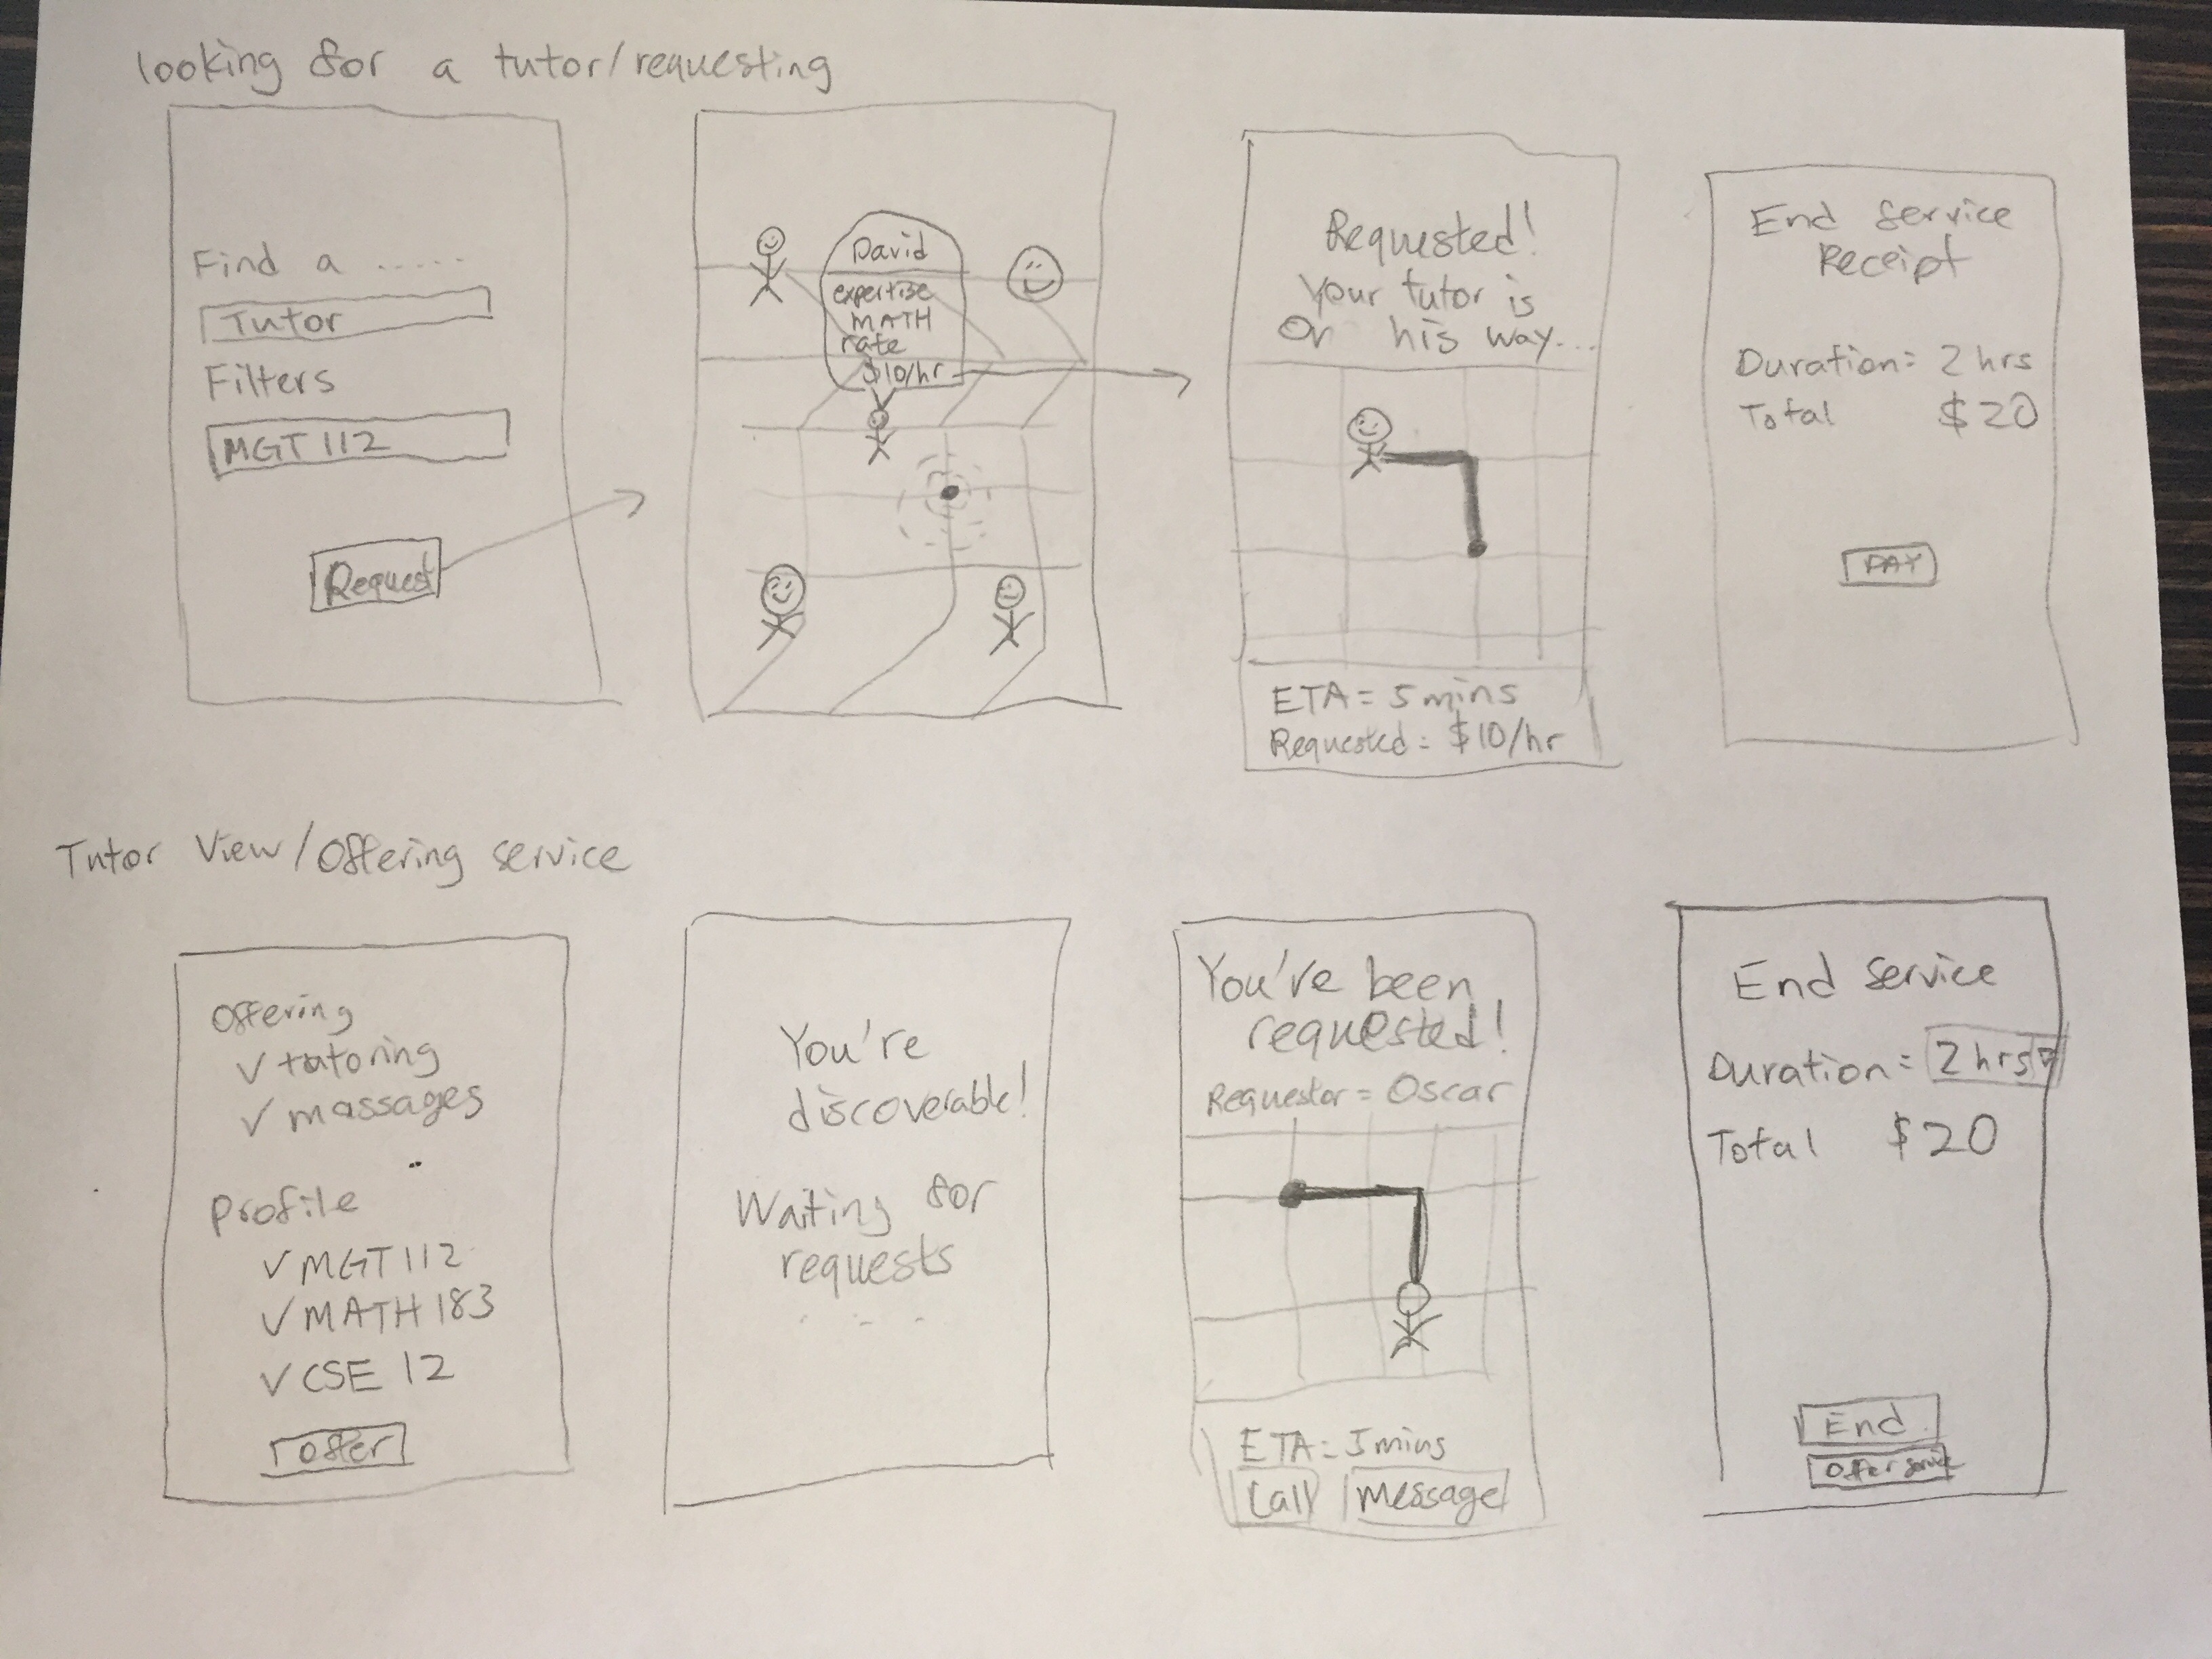 looking for a tutor/requesting
Find a .....
Tutor
Filters
MGT 112
Request
David
expertise
MATH
rate
$10/hr
Requested!
Your tutor is
On his way...
ETA = 5 mins
Requested = $10/hr
End service
Receipt
Duration: 2 hrs
Total $20
PAY
Tutor View/Offering service
Offering
✓ tutoring
✓ massages
Profile
✓ MGT 112
✓ MATH 183
✓ CSE 12
offer
You're
discoverable!
Waiting for
requests
...
You've been
requested!
Requestor = Oscar
ETA = 5 mins
Call message
End Service
Duration = 2 hrs
Total $20
End
Offer service